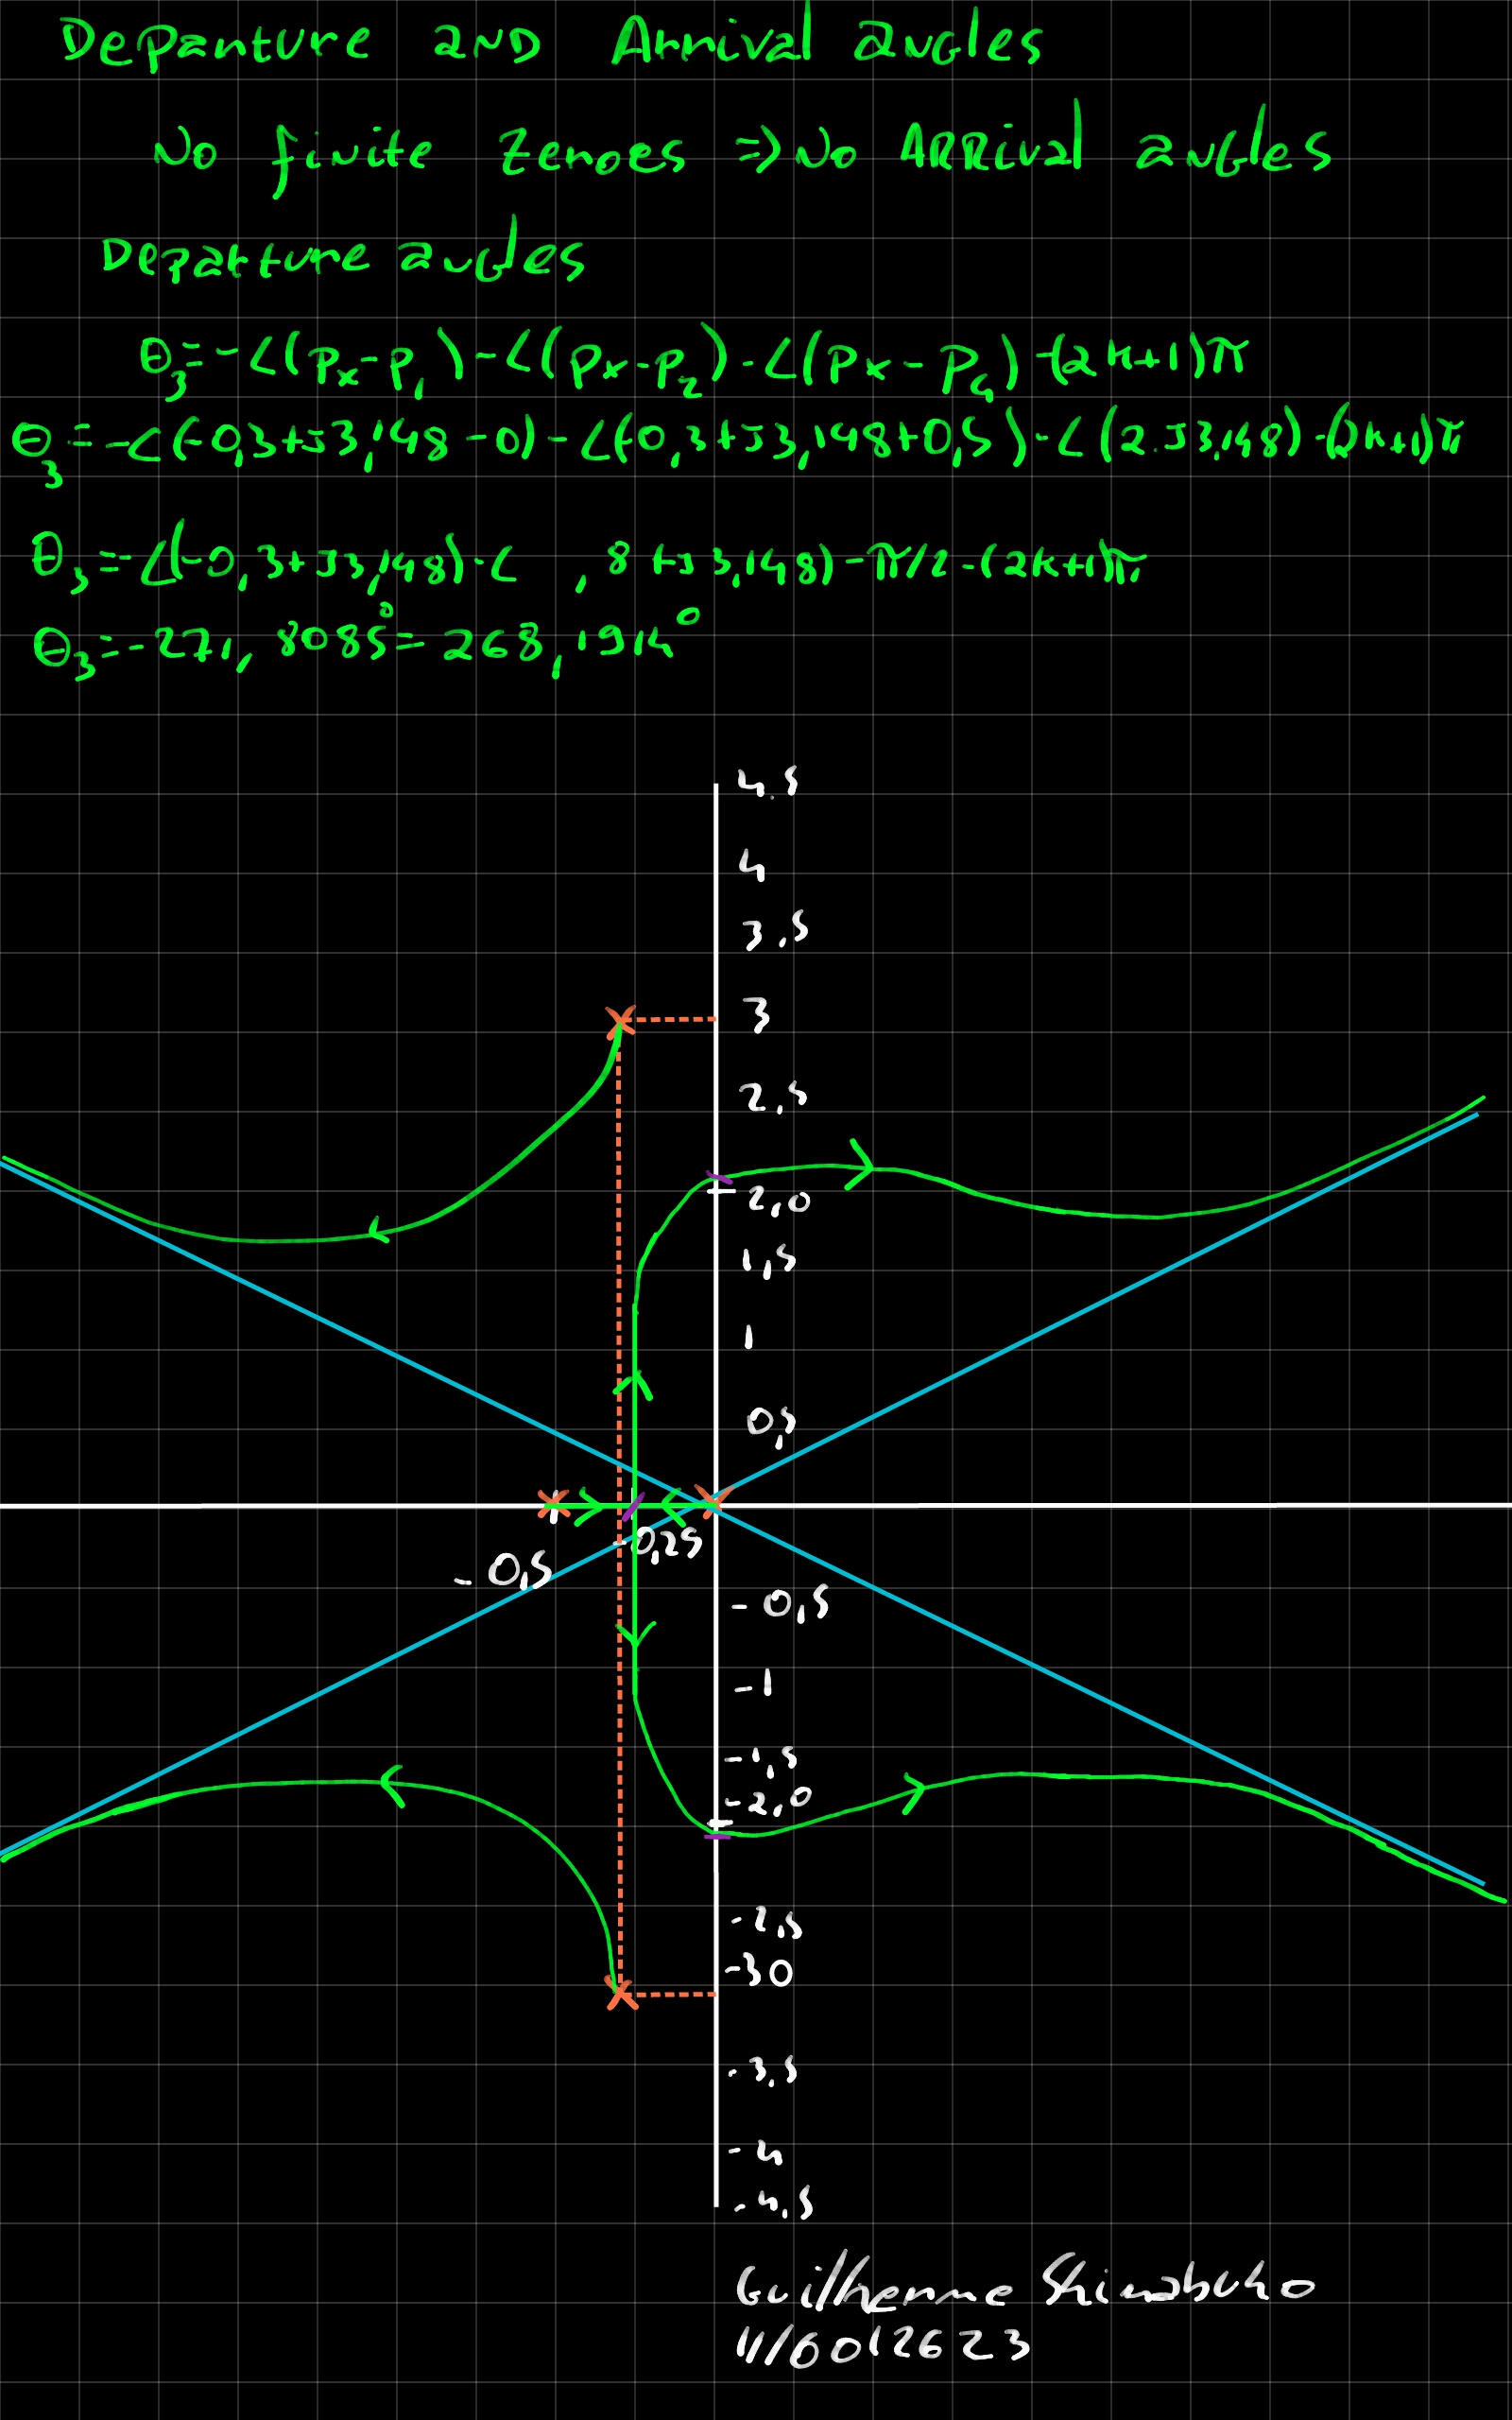 Departure and Arrival angles
No finite zeroes => No ARRival angles
Departure angles
θ₃ = -∠(pₓ-p₁)-∠(pₓ-p₂)-∠(pₓ-p₄)-(2k+1)π
θ₃ = -∠(-0,3+J3,148-0)-∠(-0,3+J3,148+0,5)-∠(2.J3,148)-(2k+1)π
θ₃ = -∠(-0,3+J3,148)-∠ ,8+J3,148)-π/2-(2k+1)π
θ₃ = -271,8085° = 268,1914°
4.5
4
3,5
3
2,5
2,0
1,5
1
0,5
-0,25
-0,5
-0,5
-1
-1,5
-2,0
-2,5
-30
-3,5
-4
-4,5
Guilherme Shimabuko
11/0012623